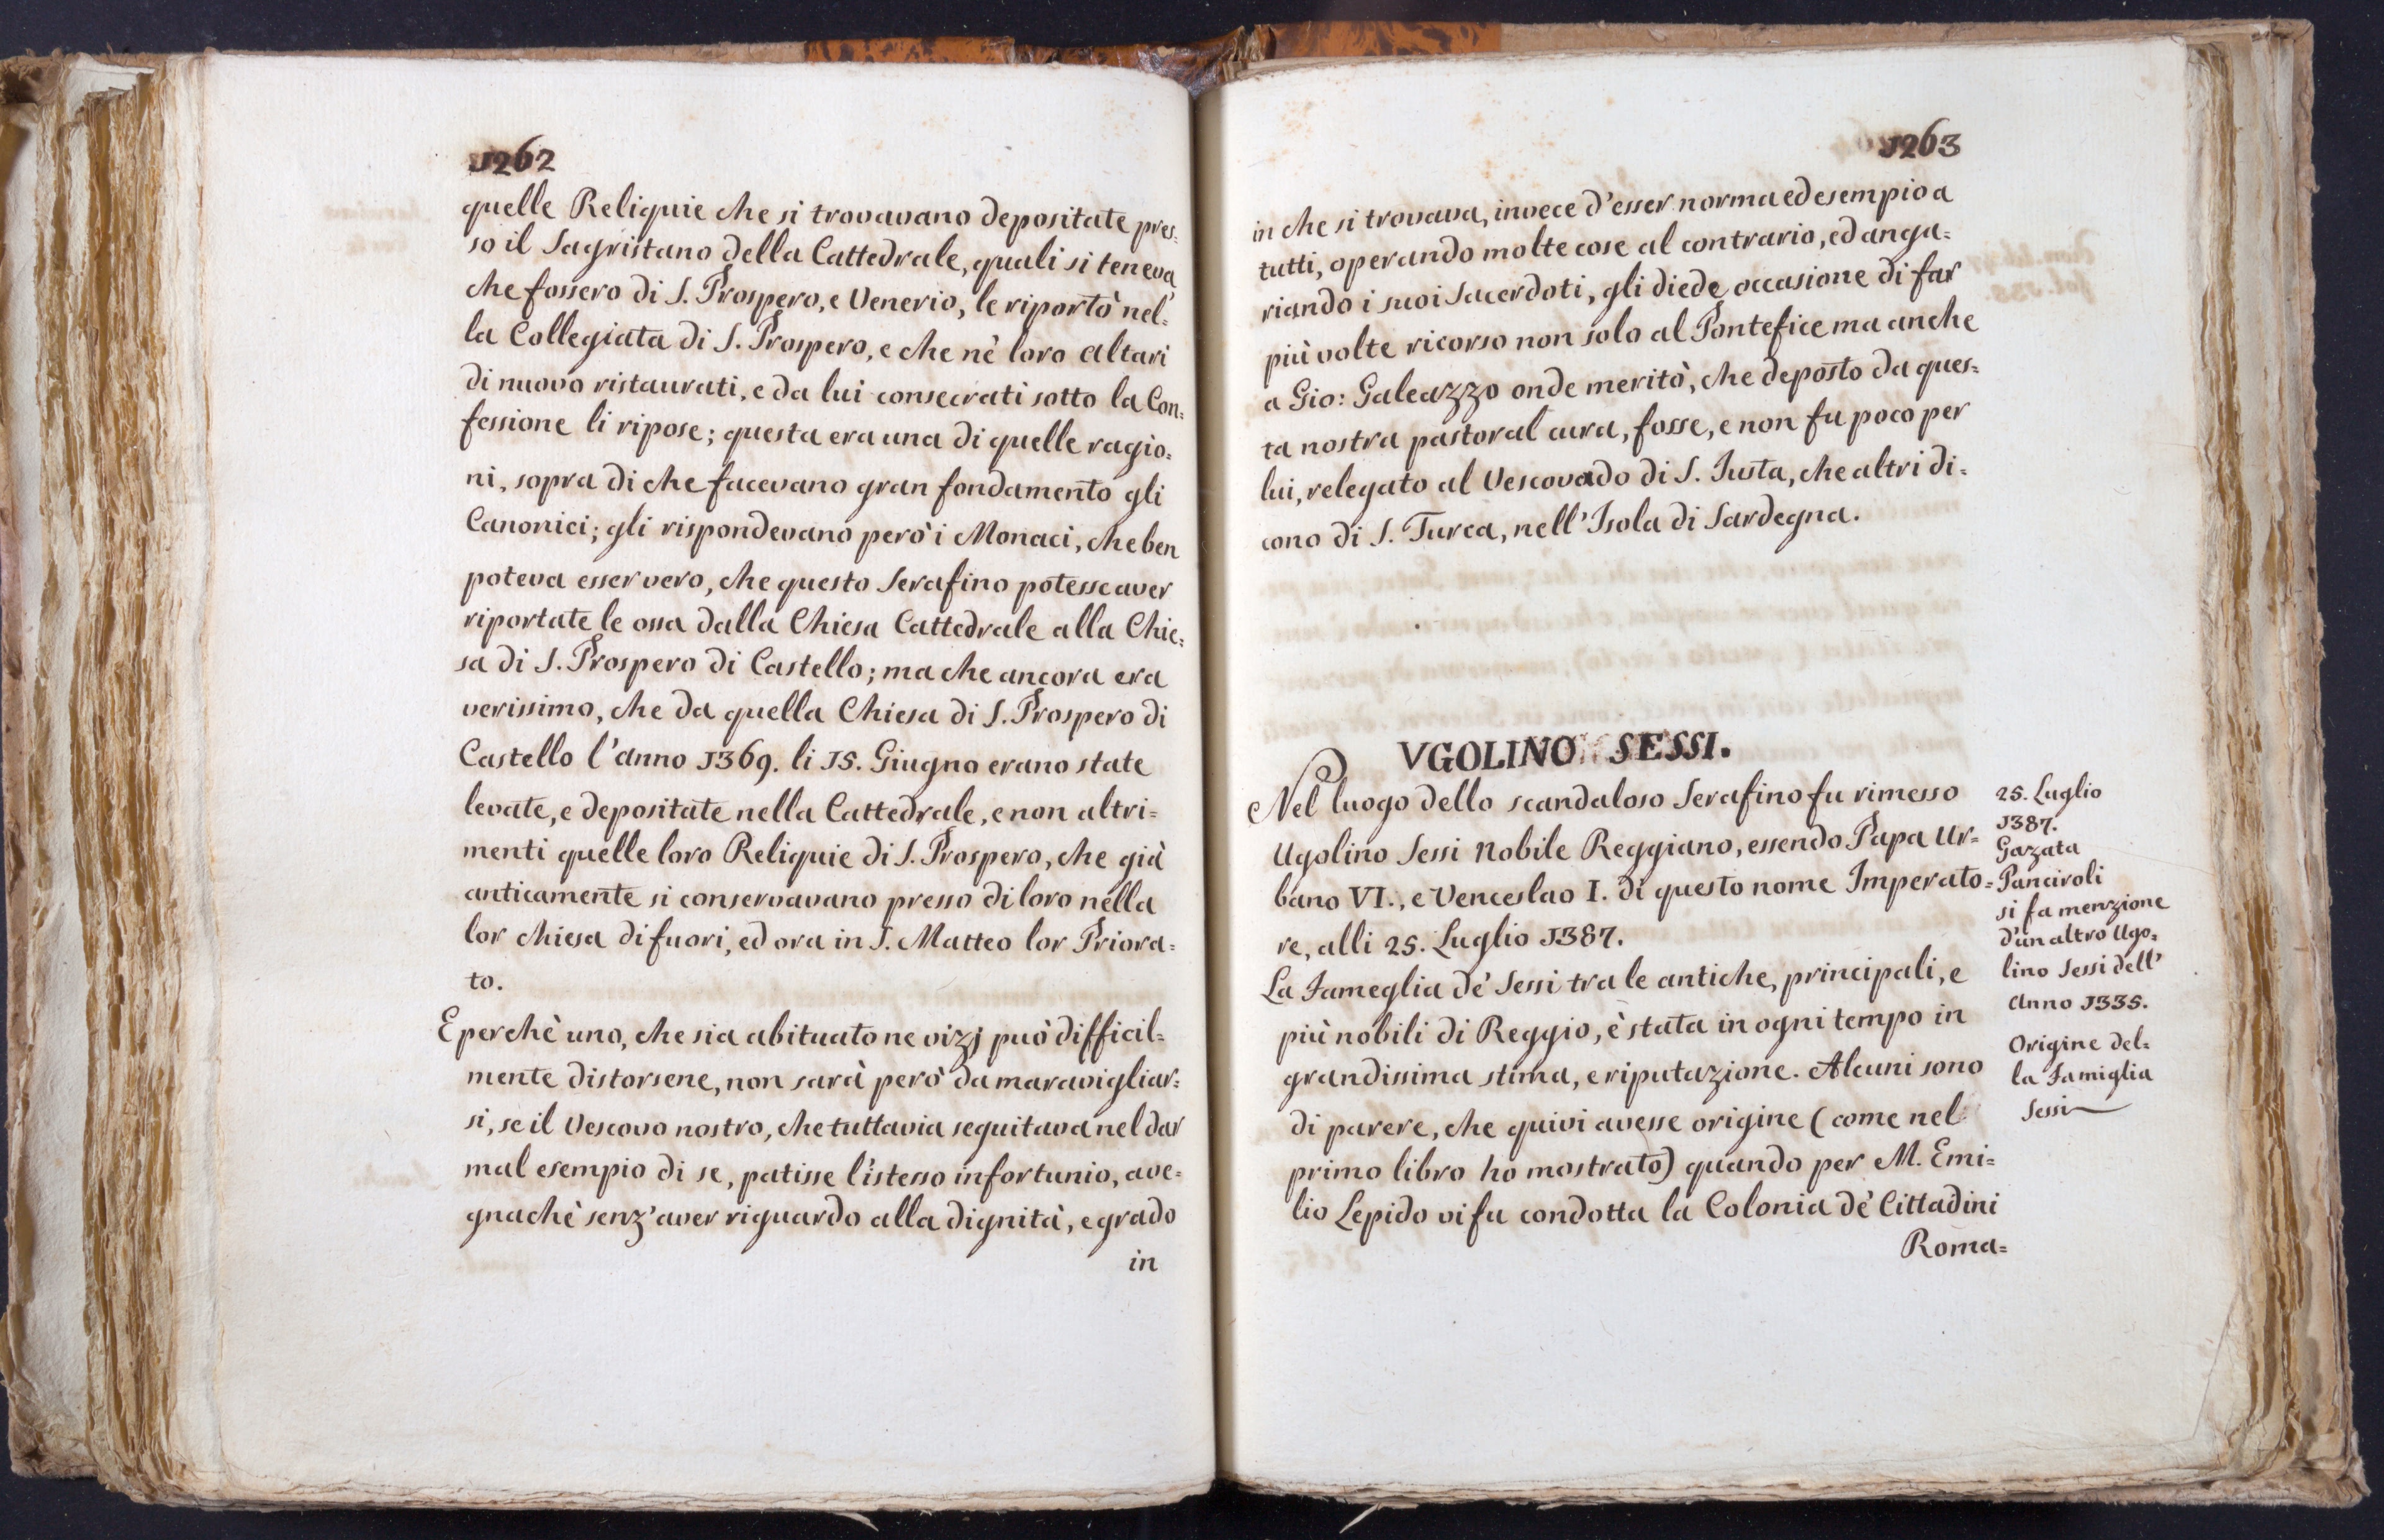 1262
quelle Reliquie che si trovavano depositate pres=
so il Sagristano della Cattedrale, quali si teneva
che fossero di S. Prospero, e Venerio, le riportò nel=
la Collegiata di S. Prospero, e che nè loro Altari
di nuovo ristaurati, e da lui consecrati sotto la Con=
fessione li ripose; questa era una di quelle ragio=
ni, sopra di che facevano gran fondamento gli
Canonici; gli rispondevano però i Monaci, che ben
poteva esser vero, che questo Serafino potesse aver
riportate le ossa dalla Chiesa Cattedrale alla Chie=
sa di S. Prospero di Castello; ma che ancora era
verissimo, che da quella Chiesa di S. Prospero di
Castello l'Anno 1369. li 15. Giugno erano state
levate, e depositate nella Cattedrale, e non altri=
menti quelle loro Reliquie di S. Prospero, che già
anticamente si conservavano presso di loro nella
lor chiesa di fuori, ed ora in S. Matteo lor Priora=
to.
E perchè uno, che sia abituato ne vizj può difficil=
mente distorsene, non sarà però da maravigliar=
si, se il Vescovo nostro, che tuttavia seguitava nel dar
mal esempio di se, patisse l'istesso infortunio, ave=
gnachè senz'aver riguardo alla dignità, e grado
in
1263
in che si trovava, invece d'esser norma ed esempio a
tutti, operando molte cose al contrario, ed anga=
riando i suoi Sacerdoti, gli diede occasione di far
più volte ricorso non solo al Pontefice ma anche
a Gio: Galeazzo onde meritò, che deposto da ques=
ta nostra pastoral cura, fosse, e non fu poco per
lui, relegato al Vescovado di S. Justa, che altri di=
cono di S. Turca, nell'Isola di Sardegna.
VGOLINO SESSI.
Nel luogo dello scandaloso Serafino fu rimesso
Ugolino Sessi Nobile Reggiano, essendo Papa Ur=
bano VI., e Venceslao I. di questo nome Imperato=
re, alli 25. Luglio 1387.
La Fameglia dè Sessi tra le antiche, principali, e
più nobili di Reggio, è stata in ogni tempo in
grandissima stima, e riputazione. Alcuni sono
di parere, che quivi avesse origine (come nel
primo libro ho mostrato) quando per M. Emi=
lio Lepido vi fu condotta la Colonia dè Cittadini
Roma=
25. Luglio
1387.
Gazata
Panciroli
si fa menzione
d'un altro Ugo=
lino Sessi dell'
Anno 1335.
Origine del=
la Famiglia
Sessi